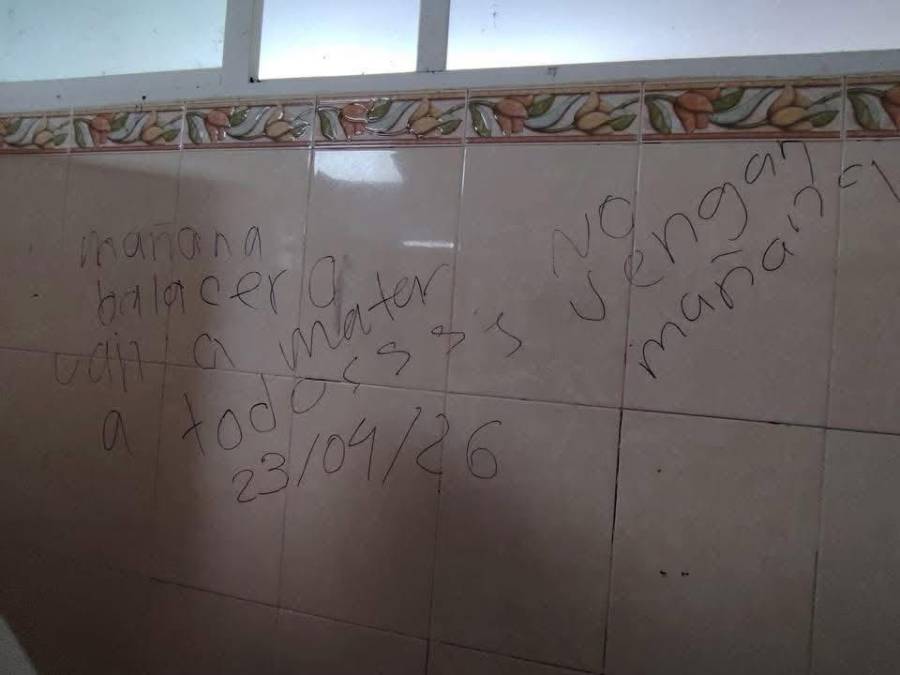 mañana
balacera
van a mater
a todocsss
23/04/26
NO
vengan
mañana